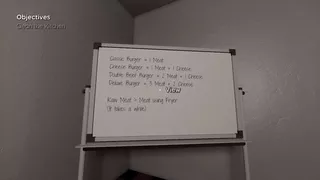 Objectives
Classic Burger = 1 Meat
Cheese Burger = 1 Meat + 1 Cheese
Double Beef Burger = 2 Meat + 1 Cheese
Burger = 3 Meat + 2 Cheese
View
Raw Meat > Meat using Fryer
(It takes a while)